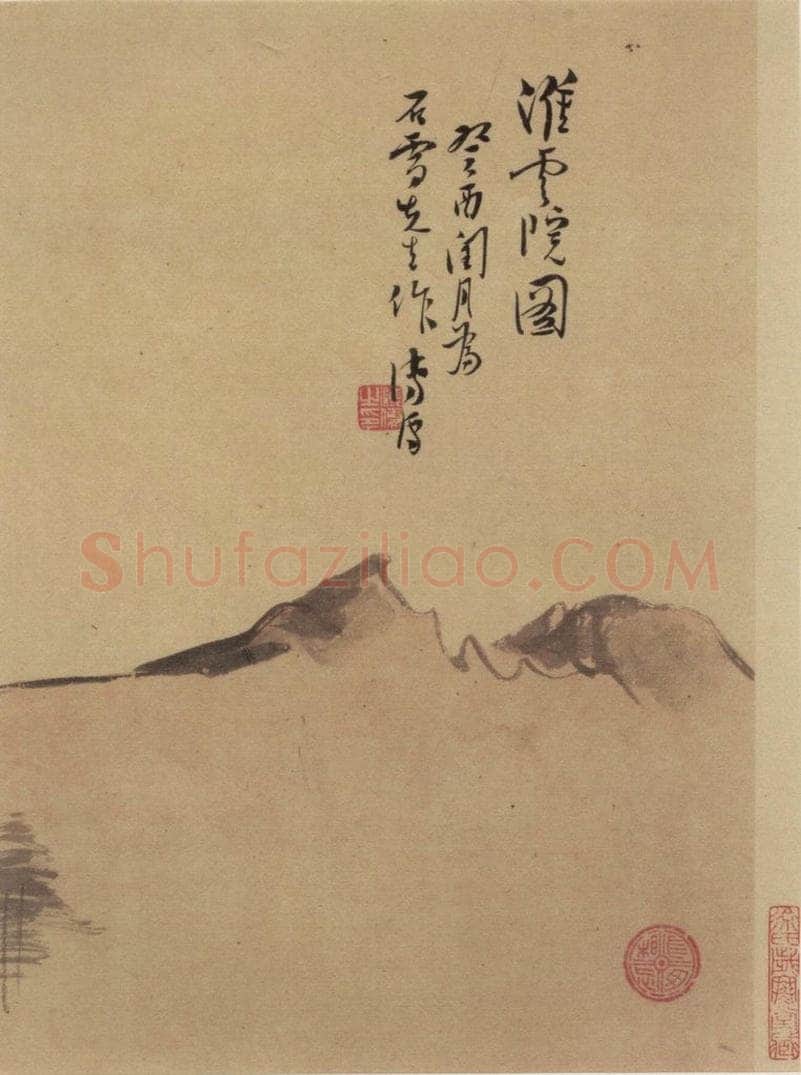 淮雲院图
癸酉閏月為
石雪先生作 溥儒
Shufaziliao.COM